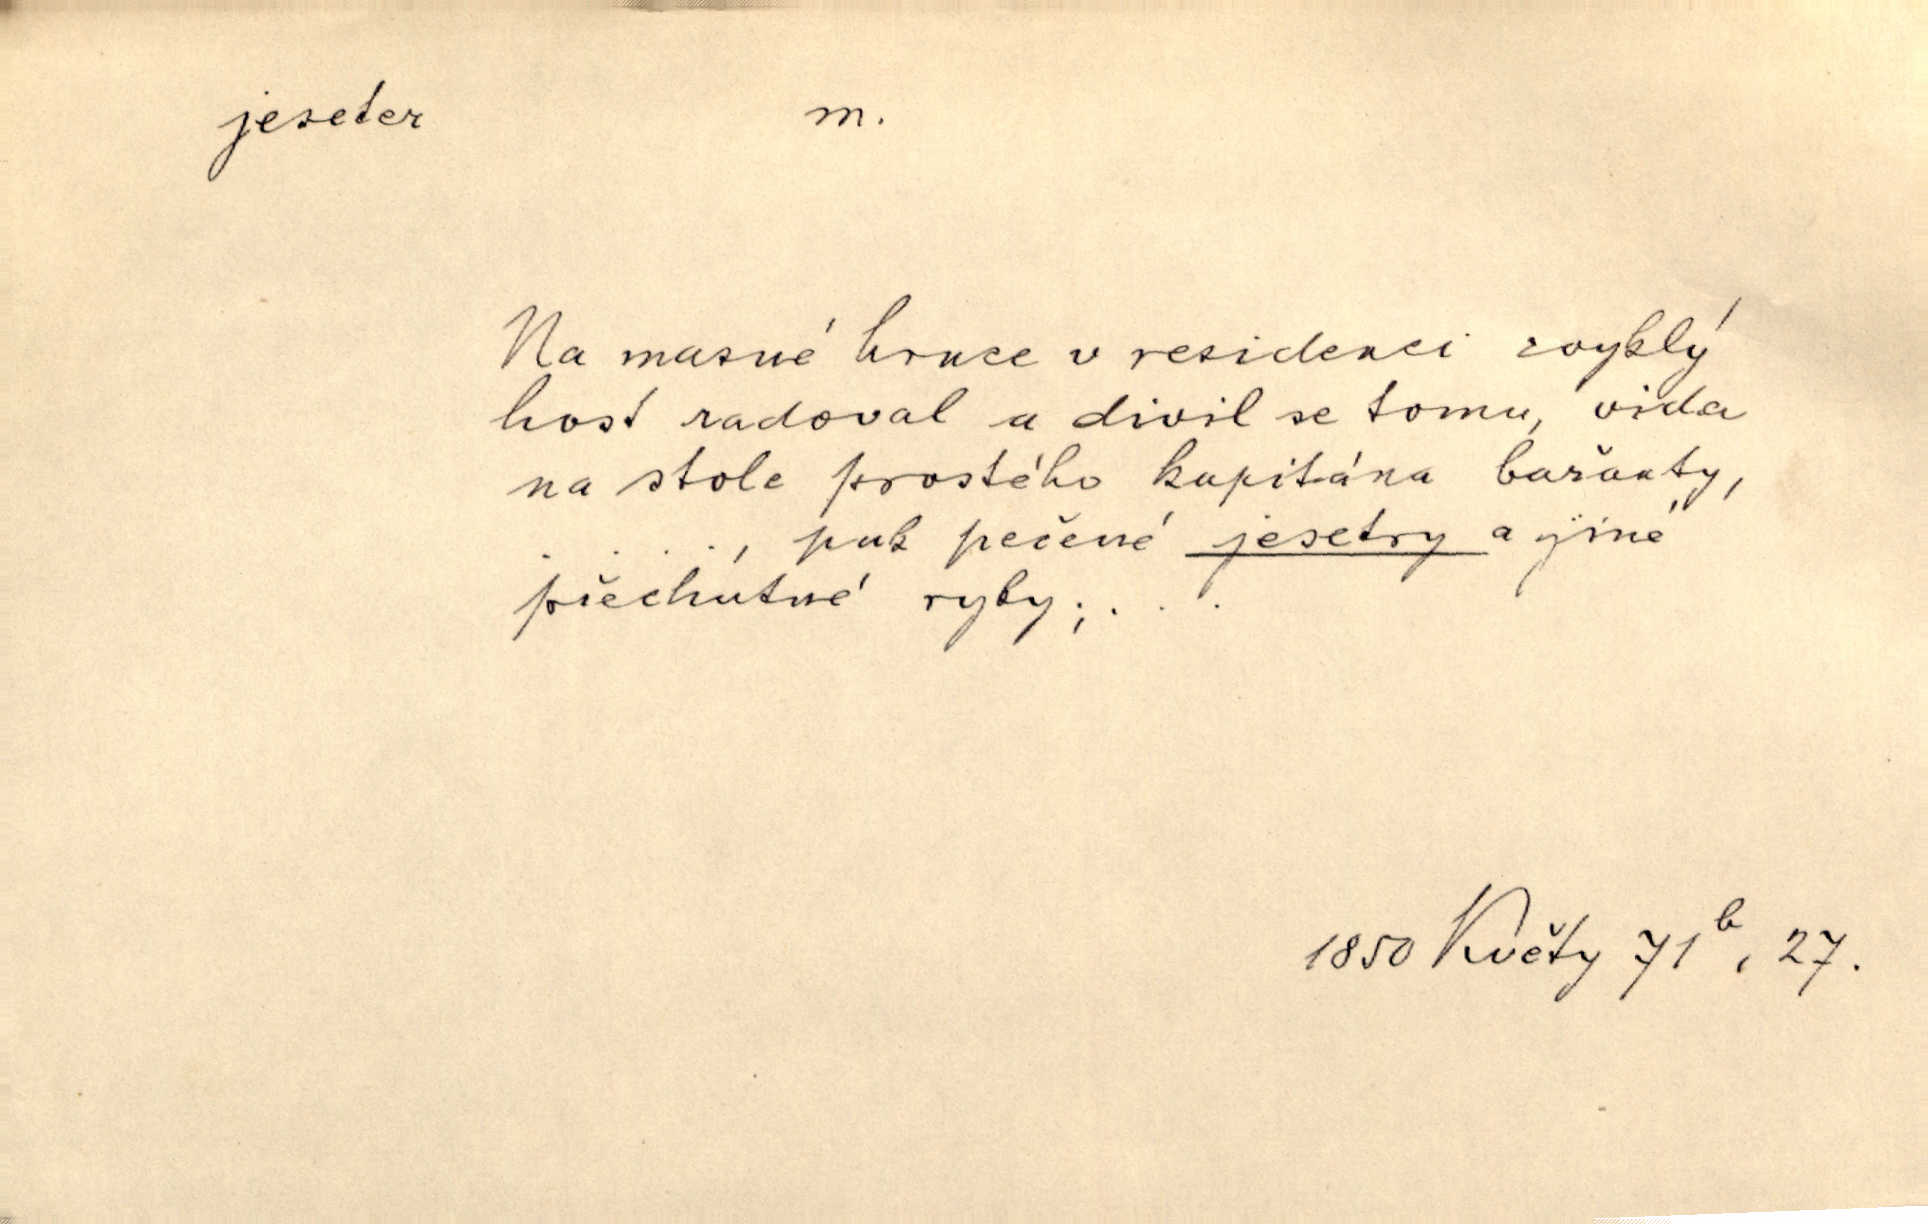 jeseter m.
Na masné hrnce v residenci zvyklý
host radoval a divil se tomu, vida
na stole prostého kapitána bažanty,
. . . ., pak pečené jesetry a jiné
přechutné ryby; . . .
1850 Květy 71b, 27.